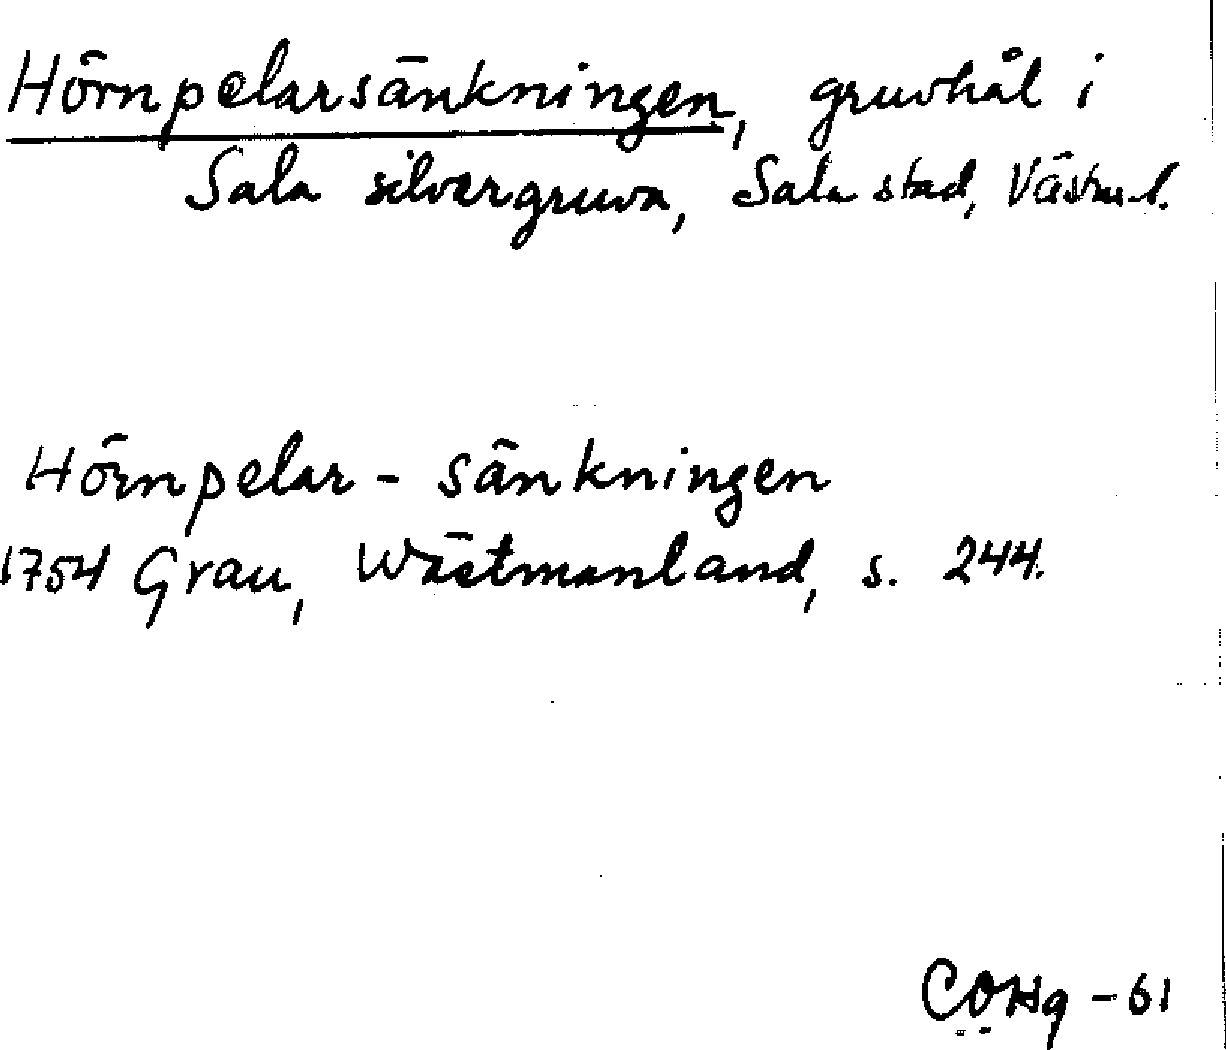 Hörnpelarsänkningen, gruvhål i
Sala silvergruva, Sala stad, Västml.
Hörnpelar - sänkningen
1754 Grau, Wästmanland, s. 244.
COHg - 61